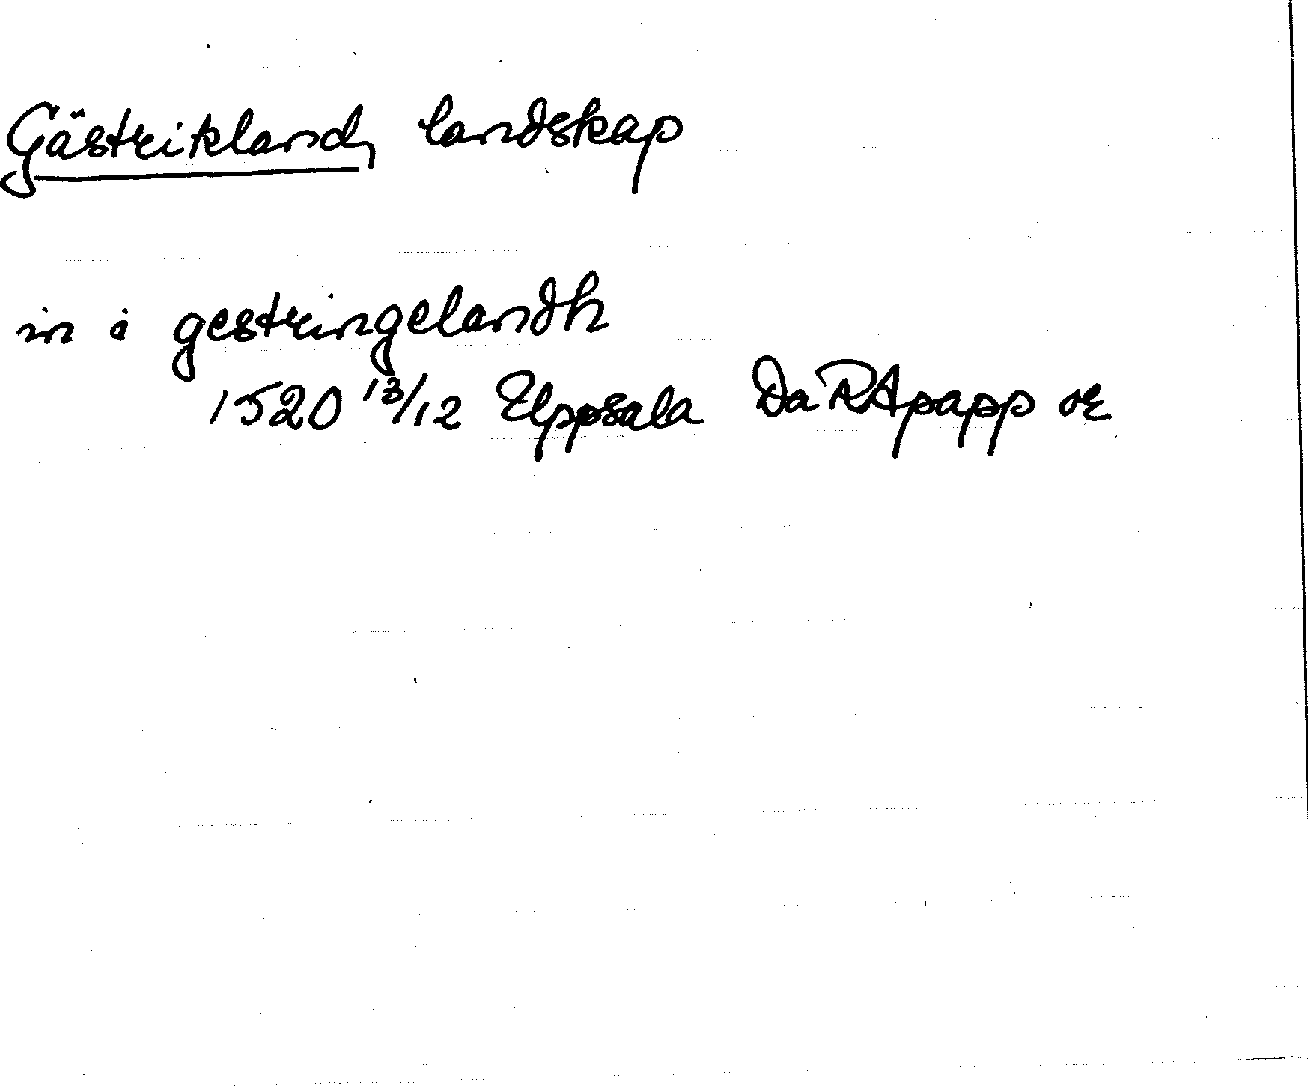 Gästrikland, landskap
in i gestringelandh
1520 13/12 Uppsala Da RA papp or